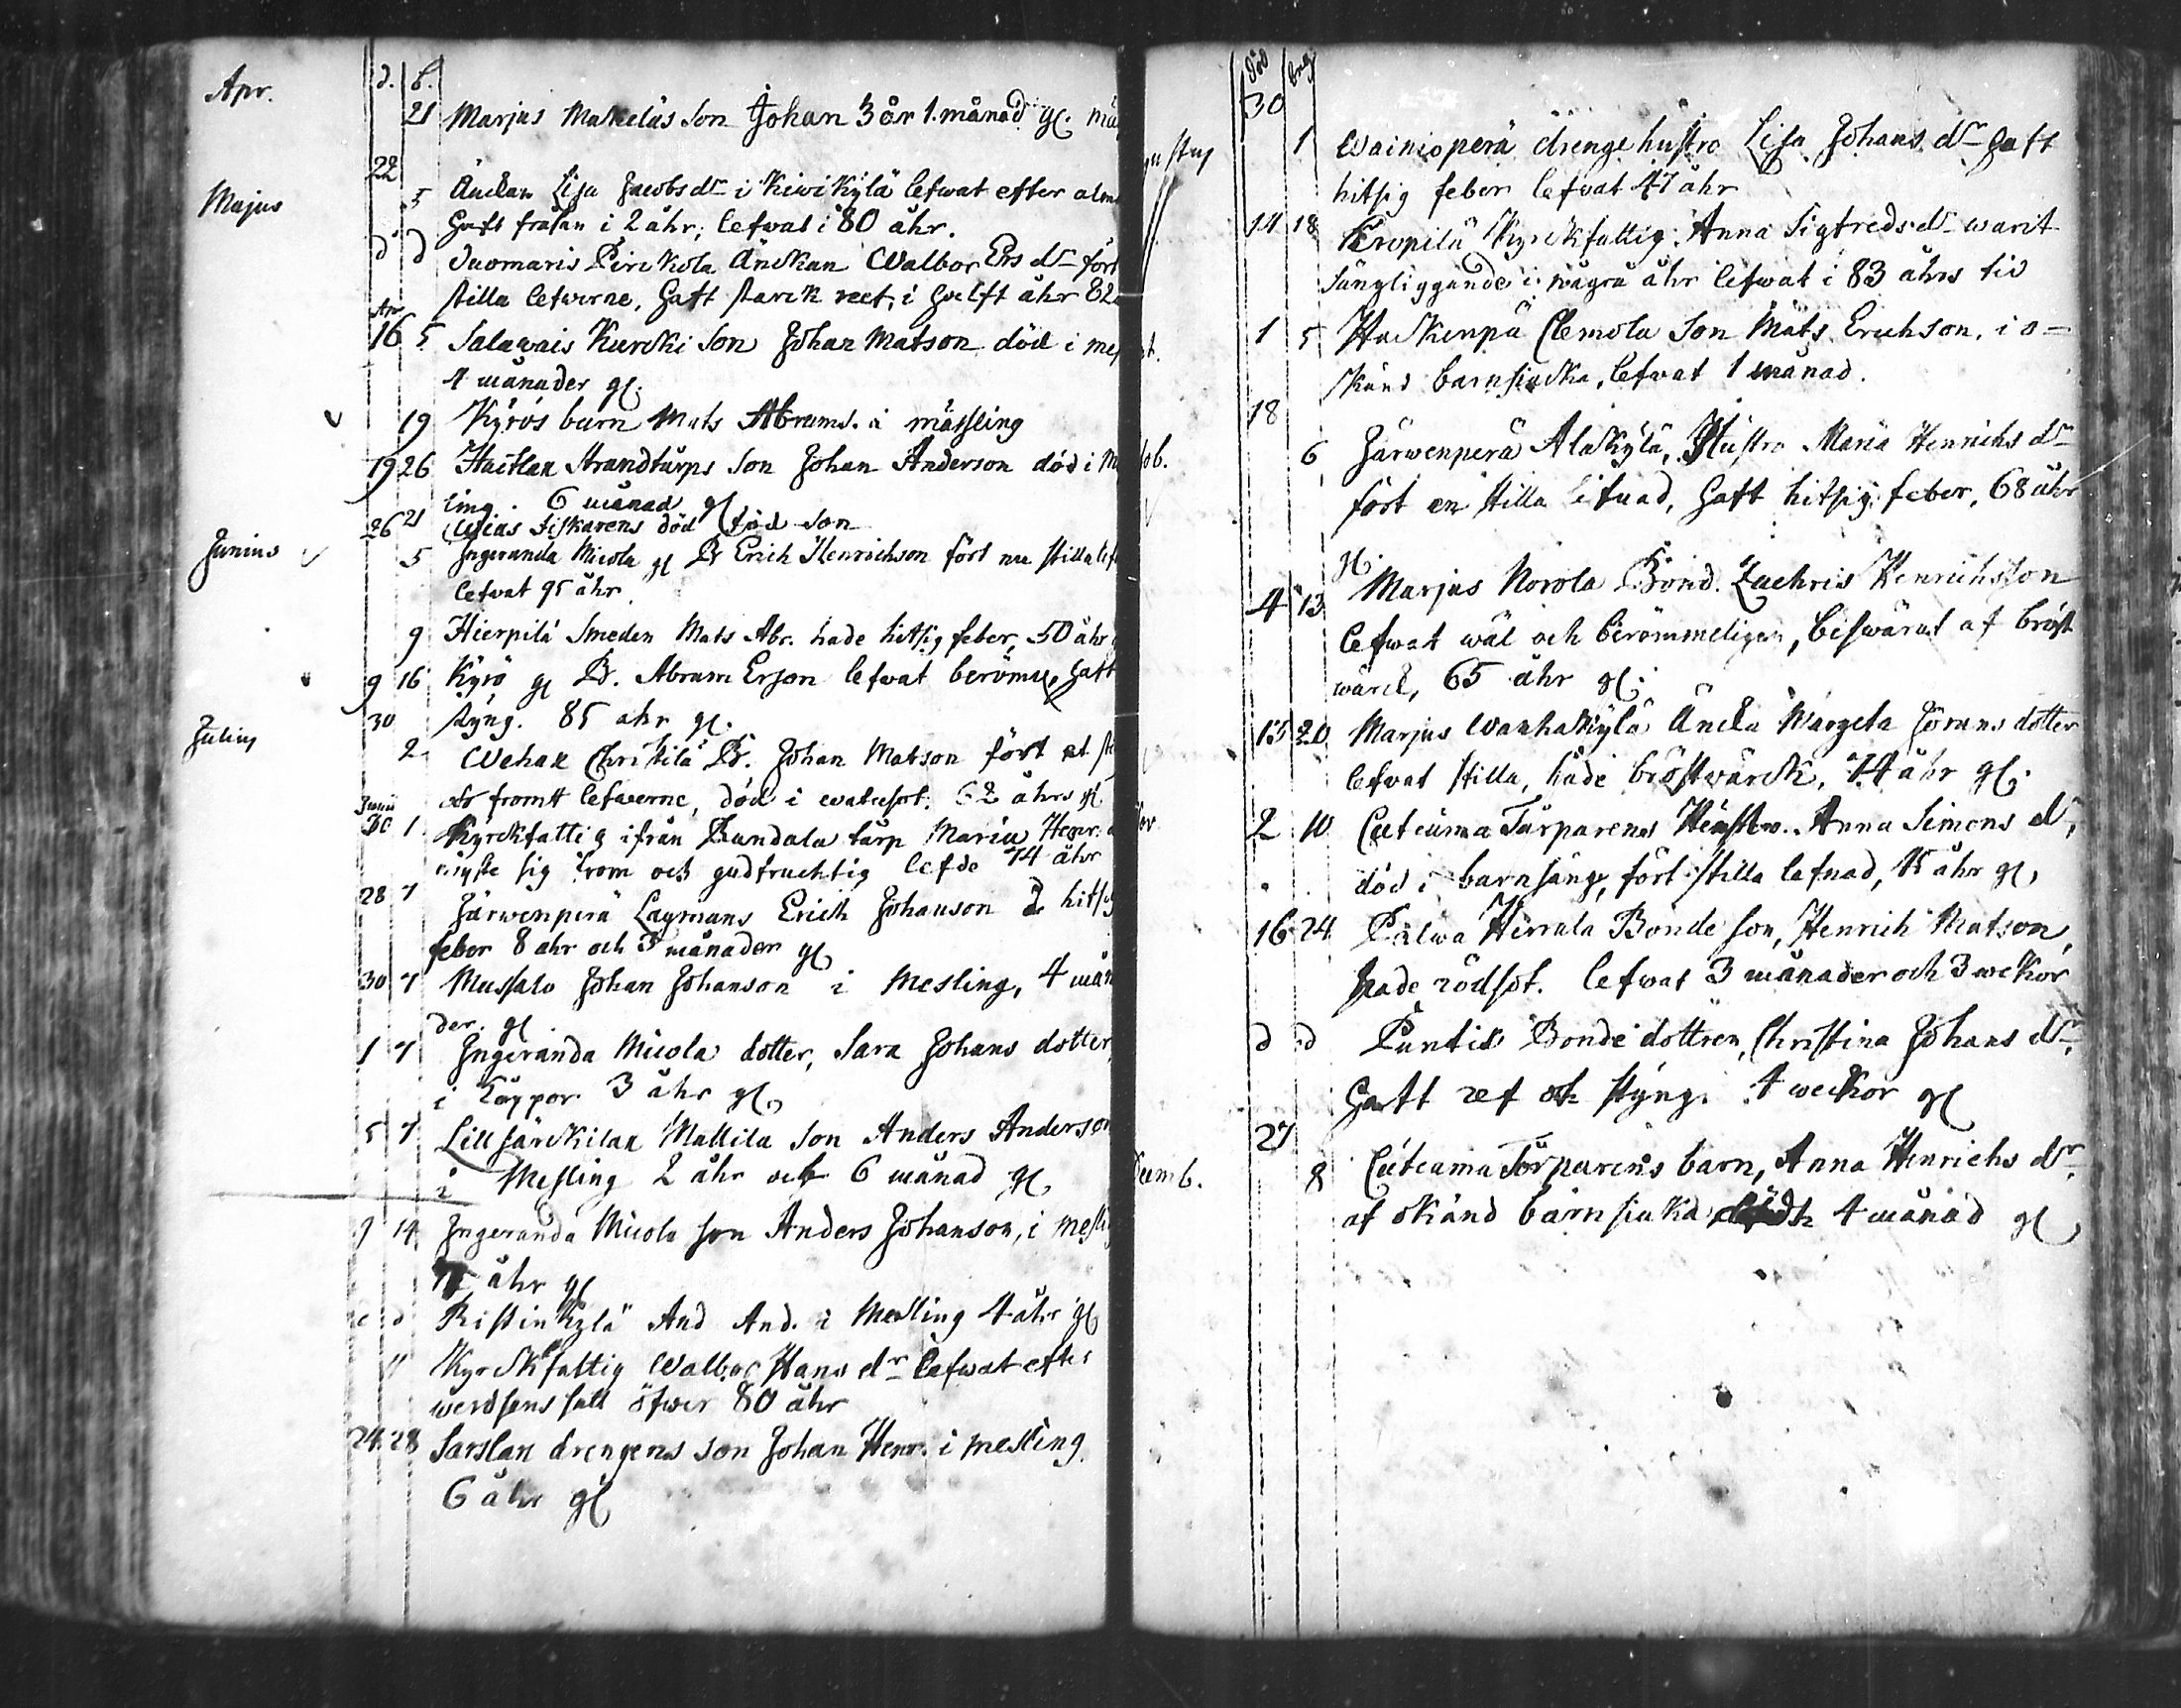 Apr.
d. b.
21 Marjus Makeläs Son Johan 3 år 1. månad gl.
22
Majus
5 Änckan Lisa Jacobs dr i Kiwikylä lefwat efter
haft fråtan i 2 åhr, lefwat i 80 åhr.
d d Suomaris Pirckola Änckan Walbor Ers dr fört
stilla lefwerne, haft starck reet, i halft åhr 82
Apr
16 5 Salawais Kurcki Son Johan Matson död i
4 månader gl.
19 Kyrös barn Mats Abrams. i mässling
19 26 Haitlax Strandtårps Son Johan Anderson död i
ling. 6 månad gl
26 21 Fiskarens död född son
Junius
5 Ingeranda Micola gl B Erich Henrichson fört nu stilla
lefwat 95 åhr
9 Hierpilä Smeden Mats Abr. hade hitsig feber, 50 åhr
9 16 Kyrö gl B. Abram Erson lefwat berömme. haft
30 styng. 85 åhr gl.
Julius
2 Wehax Christilä B. Johan Matson fört et
fromt lefwerne, död i watusot. 62 åhrs gl
Junii
30 1 Kyrckfattig ifrån Bandala tårp Maria
sig from och gudfruchtig lefde 74 åhr
28 7 Järwenperä Laymans Erich Johanson d hitsig
feber 8 åhr och 3 månader gl
30 7 Mussalo Johan Johanson i Mesling, 4 mån
der. gl
1 7 Ingeranda Micola dotter, Sara Johans dotter,
i Koppor 3 åhr gl
5 7 Lillsärckilax Mallila Son Anders Anderson
i Mesling 2 åhr och 6 månad gl
9 14 Ingeranda Micola son Anders Johanson, i
åhr gl
d Ristinkylä And And. i Mesling 4 åhr gl
11 Kyrckfattig Walbor Hans dr lefwat efter
werdsens sätt öfwer 80 åhr
24 28 Sarslax drengens Son Johan Henr. i mesling
6 åhr gl
död
30
1 Wainioperä drenge hustro Lisa Johans dr haft
hitsig feber lefwat 47 åhr
14 18 Kropilä Kyrckfattig Anna Sigfreds dr warit
sängliggande i några åhr lefwat i 83 åhrs tid
1 5 Hackenpä Clemola Son Mats Erichson, i o-
känd barnsiucka, lefwat 1 månad.
18
6 Järwenperä Alakylä, Hustro Maria Henrichs dr
fört en stilla lefnad, haft hitsig feber, 68 åhr
gl.
4 13 Marjus Norola Bond. Zachris Henrichsson
lefwat wäl och berömmeligen, beswärat af bröst
wärck, 65 åhr gl.
15 20 Marjus Wanhakylä Äncka Margeta Jörans dotter
lefwat stilla, hade bröstwärck, 74 åhr gl.
2 10 Cutcuma Tårparens Hustro. Anna Simons dr,
död i barnsäng, fört stilla lefnad, åhr gl,
16 24 Palwa Herrala Bonde son, Henrich Matson,
hade rödsot. lefwat 3 månader och 3 weckor
d d Puntis Bonde dottren, Christina Johans dr,
haft ref och styng. 4 weckor gl
27
8 Cutcuma Torparens barn, Anna Henrichs dr
af okänd barnsiucka 4 månad gl